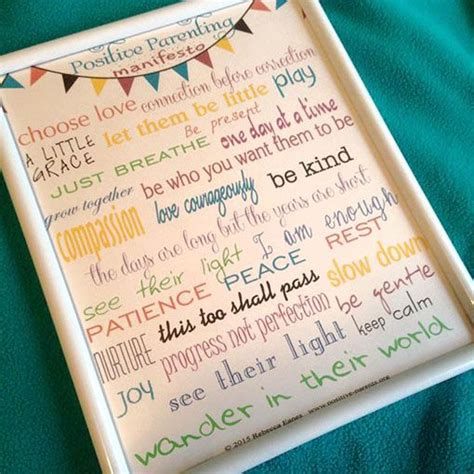 Positive Parenting
manifesto
choose love connection before correction
A LITTLE GRACE let them be little play
Be present
JUST BREATHE one day at a time
grow together be who you want them to be
compassion love courageously be kind
the days are long but the years are short
see their light I am enough
PATIENCE PEACE REST
NURTURE this too shall pass slow down
progress not perfection be gentle
JOY see their light keep calm
wander in their world
© 2015 Rebecca Eanes - www.positive-parents.org